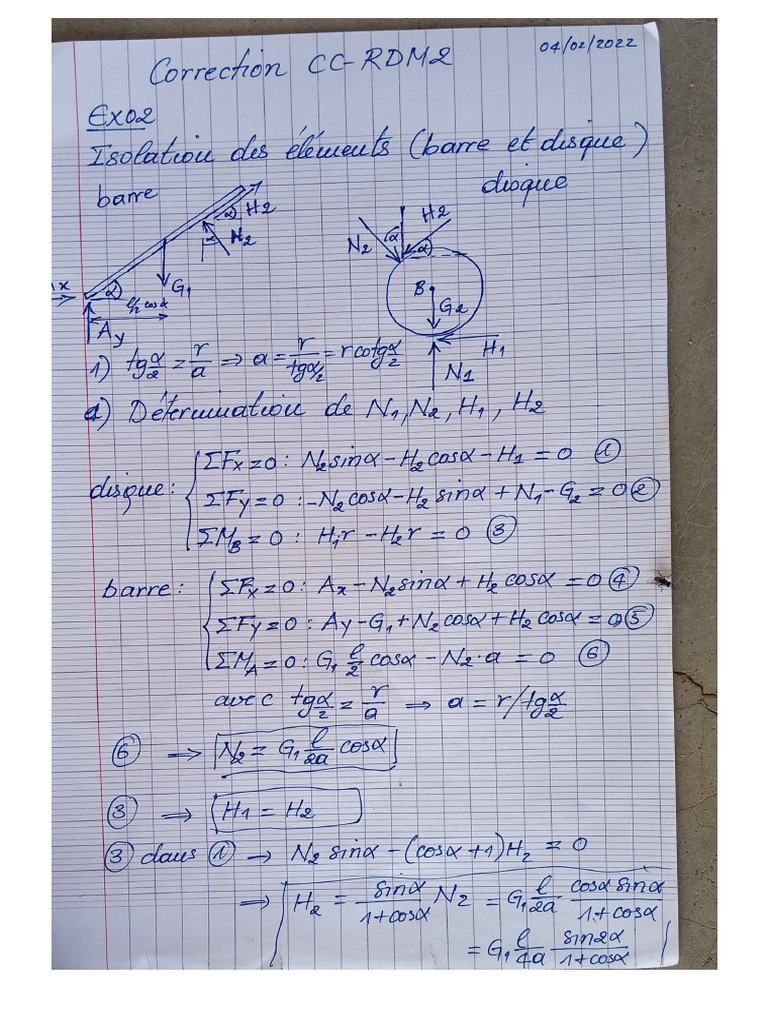 04/02/2022
Correction CC-RDM2
EX02
Isolation des éléments (barre et disque)
barre
disque
α H2
N2
x
α
G1
l/2 cosα
Ay
H2
N2 α
α
B
G2
H1
N1
1) tgα/2 = r/a ⇒ a = r/tgα/2 = r cotgα/2
a) Détermination de N1, N2, H1, H2
disque: ΣFx=0: N2 sinα - H2 cosα - H1 = 0 ①
ΣFy=0: -N2 cosα - H2 sinα + N1 - G2 = 0 ②
ΣMB=0: H1r - H2r = 0 ③
barre: ΣFx=0: Ax - N2 sinα + H2 cosα = 0 ④
ΣFy=0: Ay - G1 + N2 cosα + H2 cosα = 0 ⑤
ΣMA=0: G1 l/2 cosα - N2·a = 0 ⑥
avec tgα/2 = r/a ⇒ a = r/tgα/2
⑥ ⇒ N2 = G1 l/2a cosα
③ ⇒ H1 = H2
③ dans ① → N2 sinα - (cosα+1)H2 = 0
⇒ H2 = sinα/1+cosα N2 = G1 l/2a cosα sinα/1+cosα
= G1 l/4a sin2α/1+cosα